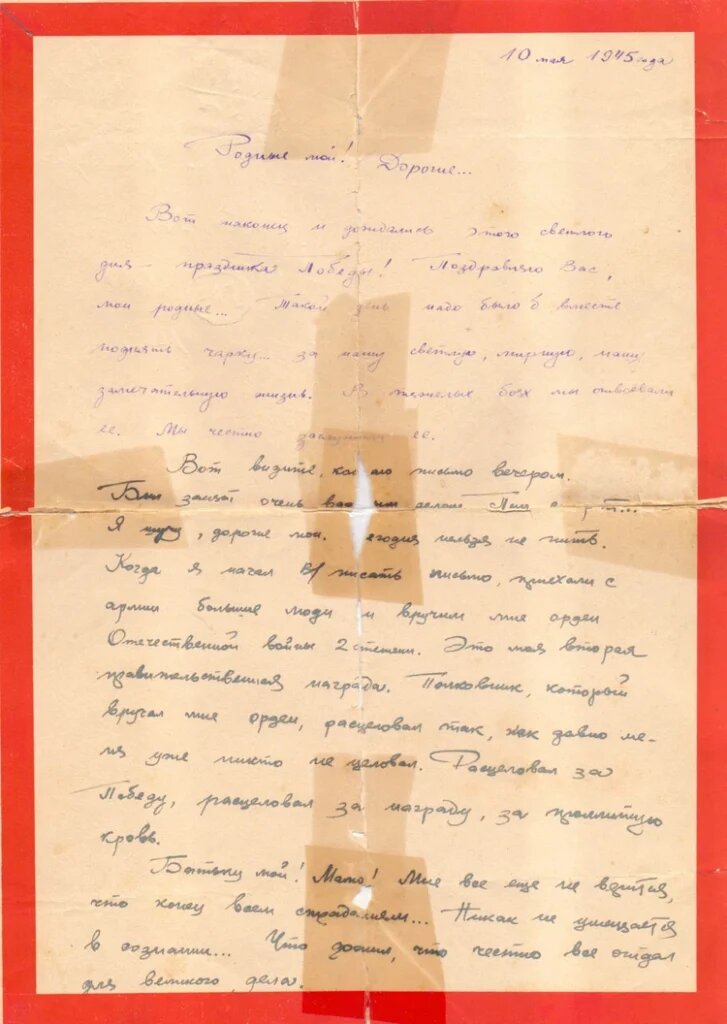 10 мая 1945 года
Родные мои! Дорогие...
Вот наконец и дождались этого светлого
дня - праздника Победы! Поздравляю Вас,
мои родные... Такой день надо было б вместе
поднять чарку... за нашу светлую, мирную, нашу
замечательную жизнь. В тяжелых боях мы отвоевали
ее. Мы честно заслужили ее.
Вот видите, письмо вечером.
Был занят очень делом
Я , дорогие мои. нельзя не пить.
Когда я начал писать письмо, приехали с
армии большие люди и вручили мне орден
Отечественной войны 2 степени. Это моя вторая
правительственная награда. Полковник, который
вручал мне орден, расцеловал так, как давно ме-
ня уже никто не целовал. Расцеловал за
Победу, расцеловал за награду, за пролитую
кровь.
Батьку мой! Мамо! Мне все еще не верится,
что конец всем страданиям... Никак не умещается
в сознании... Что дожил, что честно все отдал
для великого дела.